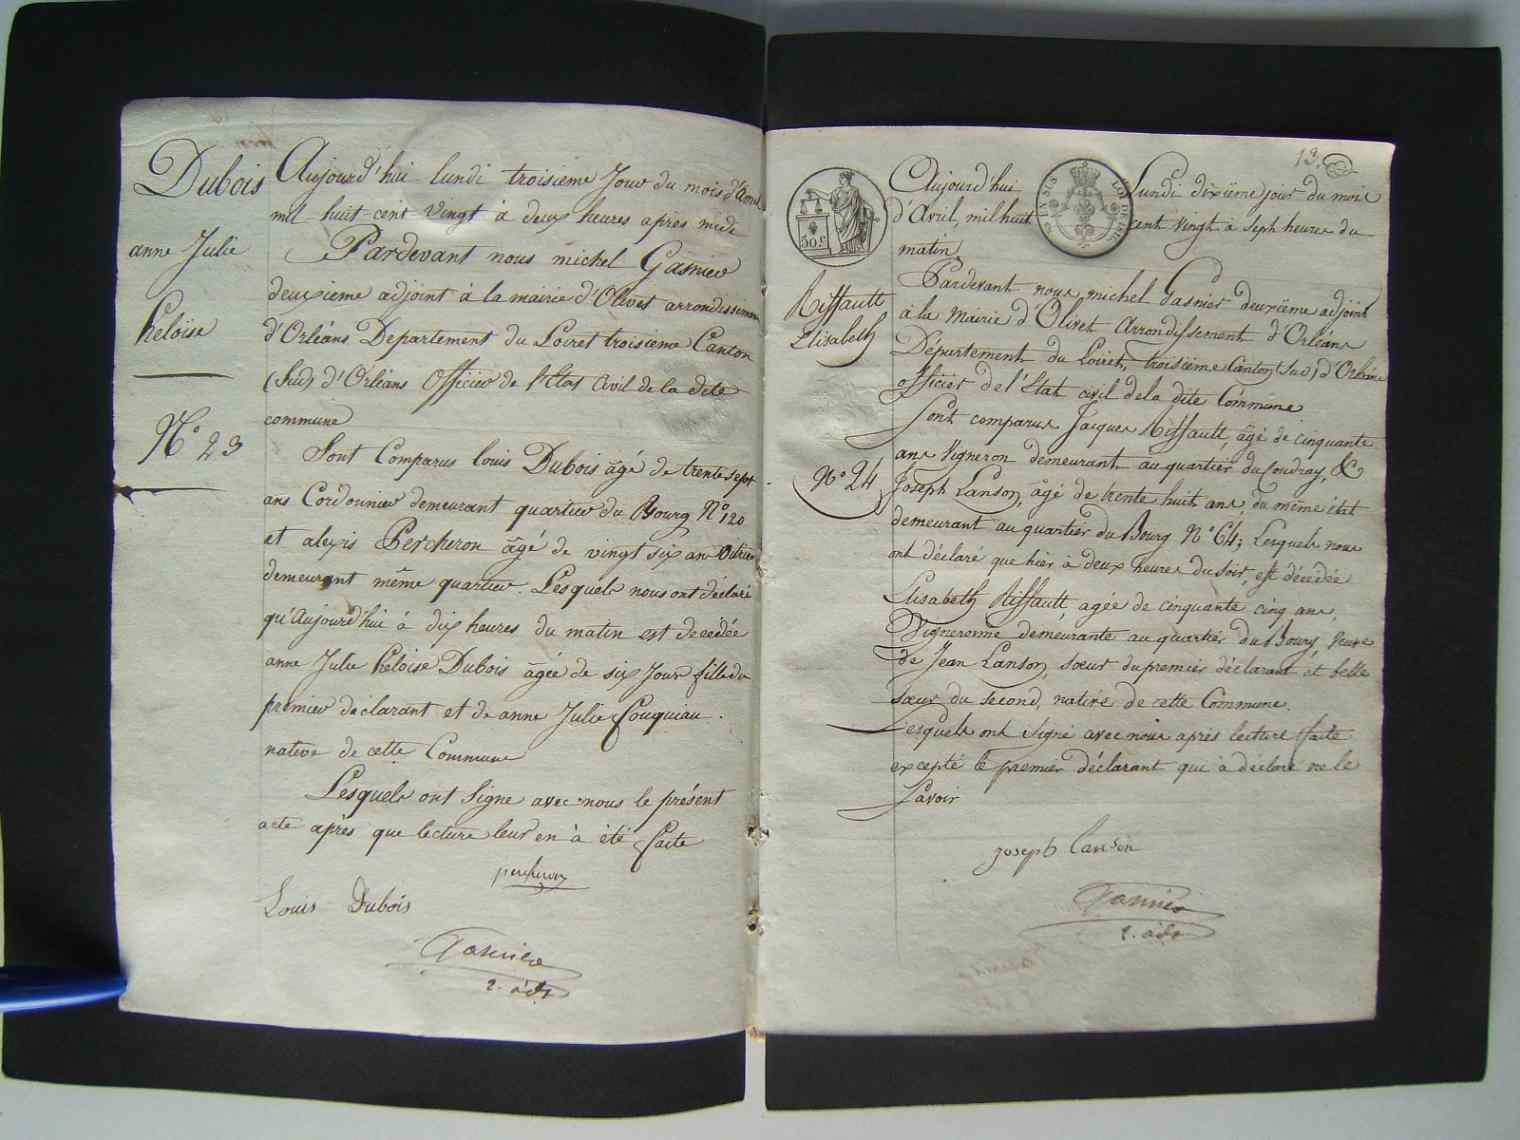 Dubois
anne Julie
héloïse
N.° 23
Aujourd'hui lundi troisieme Jour du mois d'avril
mil huit-cent Vingt à deux heures après midi
Pardevant nous michel Gasnier
deuxieme adjoint à la mairie d'Olivet arrondissement
d'Orléans Departement du Loiret troisieme Canton
(Sud) d'Orléans Officier de l'Etat Civil de la dite
commune
Sont Comparus louis Dubois âgé de trente sept
ans Cordonnier demeurant quartier du Bourg N.° 120
et alexis Percheron âgé de vingt six ans
demeurant même quartier. Lesquels nous ont déclaré
qu'Aujourd'hui à dix heures du matin est decédée
anne Julie héloïse Dubois âgée de six Jours fille du
premier declarant et de anne Julie Couquiau.
native de cette Commune
Lesquels ont Signe avec nous le présent
acte après que lecture leur en à été faite
percheron
Louis Dubois
Gasnier
2. adj.t
13.
30.c
Riffault
Elisabeth
N.° 24
Aujourd'hui Lundi dixième jour du mois
d'Avril, mil huit cent vingt à Sept heures du
matin
Pardevant nous michel Gasnier deuxième adjoint
à la Mairie d'Olivet Arrondissement d'Orléans
Département du Loiret, troisième Canton (sud) d'Orléans
officier de l'Etat civil dela dite Commune
Sont comparus Jacques Riffault, âgé de cinquante
ans Vigneron demeurant au quartier du Coudray, &
Joseph Lanson, âgé de trente huit ans, du même état
demeurant au quartier du Bourg N.° 64; Lesquels nous
ont déclaré que hier à deux heures du soir, est décédée
Elisabeth Riffault, agée de cinquante cinq ans,
Vigneronne demeurante au quartier du Bourg, Veuve
de Jean Lanson, sœur du premier déclarant et belle
sœur du second, native de cette Commune.
Lesquels ont signé avec nous après lecture faite
excepté le premier déclarant qui à déclaré ne le
Savoir
joseph lanson
Gasnier
2. adj.t